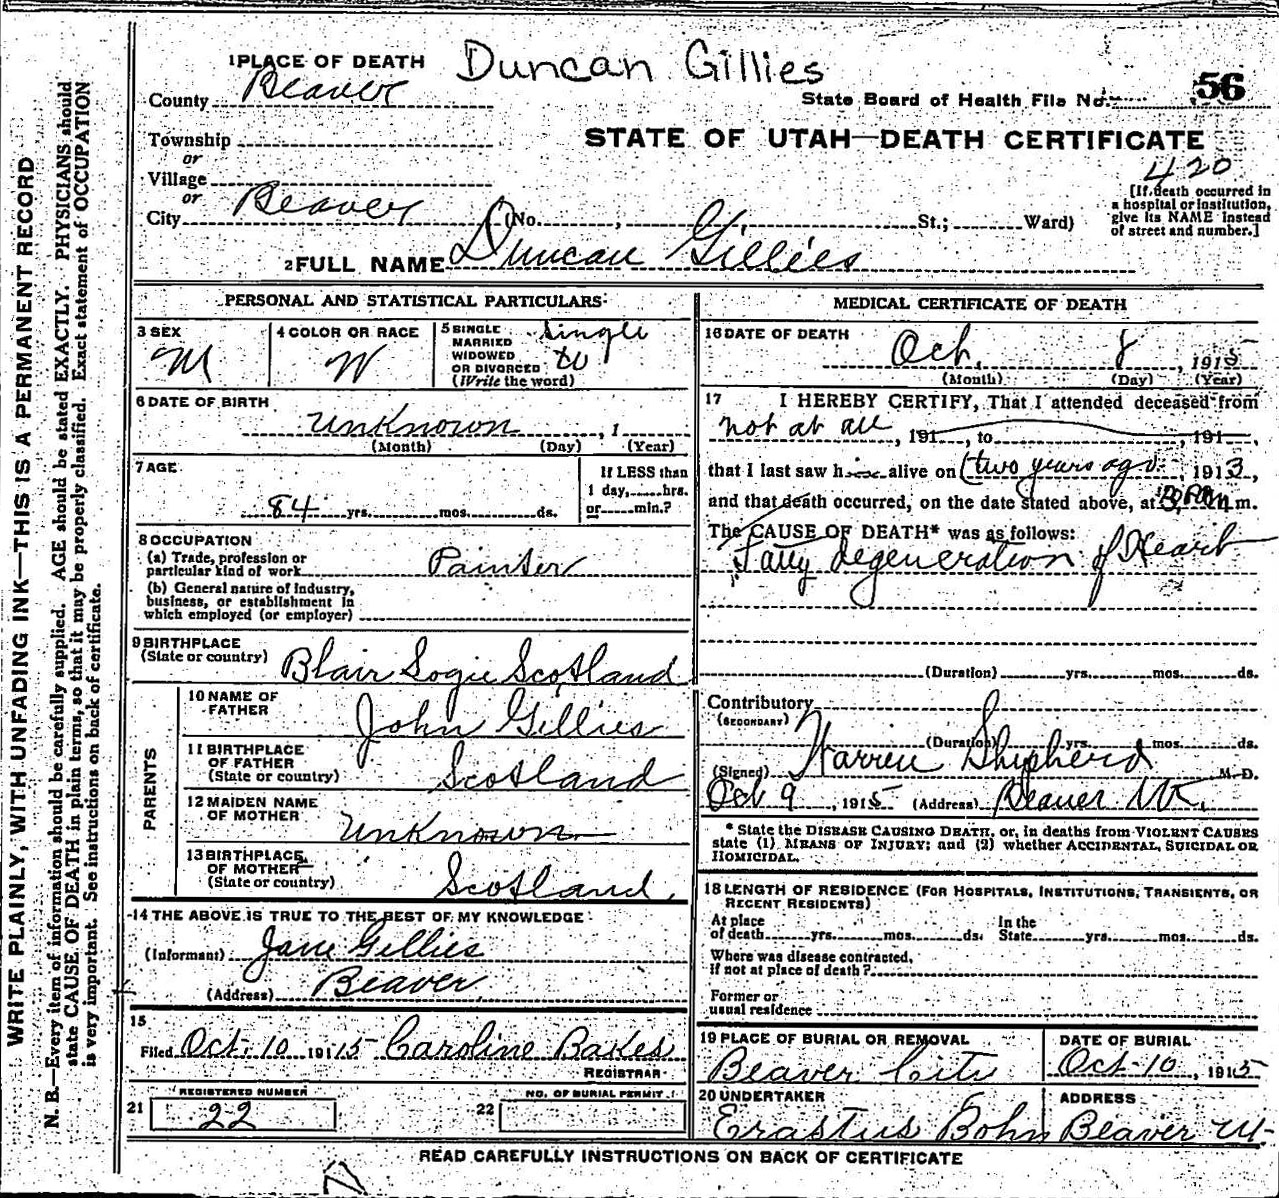 Duncan Gillies
1 PLACE OF DEATH
County Beaver
State Board of Health File No. 56
Township
or
Village
or
City Beaver (No. , St.; Ward)
STATE OF UTAH—DEATH CERTIFICATE
420
[If death occurred in
a hospital or institution,
give its NAME instead
of street and number.]
2 FULL NAME Duncan Gillies
PERSONAL AND STATISTICAL PARTICULARS
3 SEX
M
4 COLOR OR RACE
W
5 SINGLE
MARRIED
WIDOWED
OR DIVORCED
(Write the word)
single
6 DATE OF BIRTH
unknown , 1
(Month) (Day) (Year)
7 AGE
84 yrs. mos. ds.
If LESS than
1 day, hrs.
or min.?
8 OCCUPATION
(a) Trade, profession or
particular kind of work Painter
(b) General nature of industry,
business, or establishment in
which employed (or employer)
9 BIRTHPLACE
(State or country) Blair Logie Scotland
PARENTS
10 NAME OF
FATHER
John Gillies
11 BIRTHPLACE
OF FATHER
(State or country) Scotland
12 MAIDEN NAME
OF MOTHER
Unknown
13 BIRTHPLACE
OF MOTHER
(State or country) Scotland
14 THE ABOVE IS TRUE TO THE BEST OF MY KNOWLEDGE
(Informant) Jane Gillies
(Address) Beaver
15
Filed Oct 10 191 15 Caroline Bakes
REGISTRAR
REGISTERED NUMBER
21 22
NO. OF BURIAL PERMIT
22
MEDICAL CERTIFICATE OF DEATH
16 DATE OF DEATH
Oct. 8 , 1915
(Month) (Day) (Year)
17 I HEREBY CERTIFY, That I attended deceased from
not at all , 191 , to , 191 ,
that I last saw him alive on (two years ago , 1913 ,
and that death occurred, on the date stated above, at m.
The CAUSE OF DEATH* was as follows:
Fatty degeneration of Heart
(Duration) yrs. mos. ds.
Contributory
(SECONDARY)
(Duration) yrs. mos. ds.
(Signed) Warren Shepherd M. D.
Oct 9 , 1915 (Address) Beaver Ut.
* State the DISEASE CAUSING DEATH, or, in deaths from VIOLENT CAUSES
state (1) MEANS OF INJURY; and (2) whether ACCIDENTAL, SUICIDAL OR
HOMICIDAL.
18 LENGTH OF RESIDENCE (FOR HOSPITALS, INSTITUTIONS, TRANSIENTS, OR
RECENT RESIDENTS)
At place
of death yrs. mos. ds.
In the
State yrs. mos. ds.
Where was disease contracted,
if not at place of death?
Former or
usual residence
19 PLACE OF BURIAL OR REMOVAL
Beaver City
DATE OF BURIAL
Oct-10 , 1915
20 UNDERTAKER
Erastus Bohn
ADDRESS
Beaver Ut-
READ CAREFULLY INSTRUCTIONS ON BACK OF CERTIFICATE
WRITE PLAINLY, WITH UNFADING INK—THIS IS A PERMANENT RECORD
N. B.—Every item of information should be carefully supplied. AGE should be stated EXACTLY. PHYSICIANS should
state CAUSE OF DEATH in plain terms, so that it may be properly classified. Exact statement of OCCUPATION
is very important. See instructions on back of certificate.